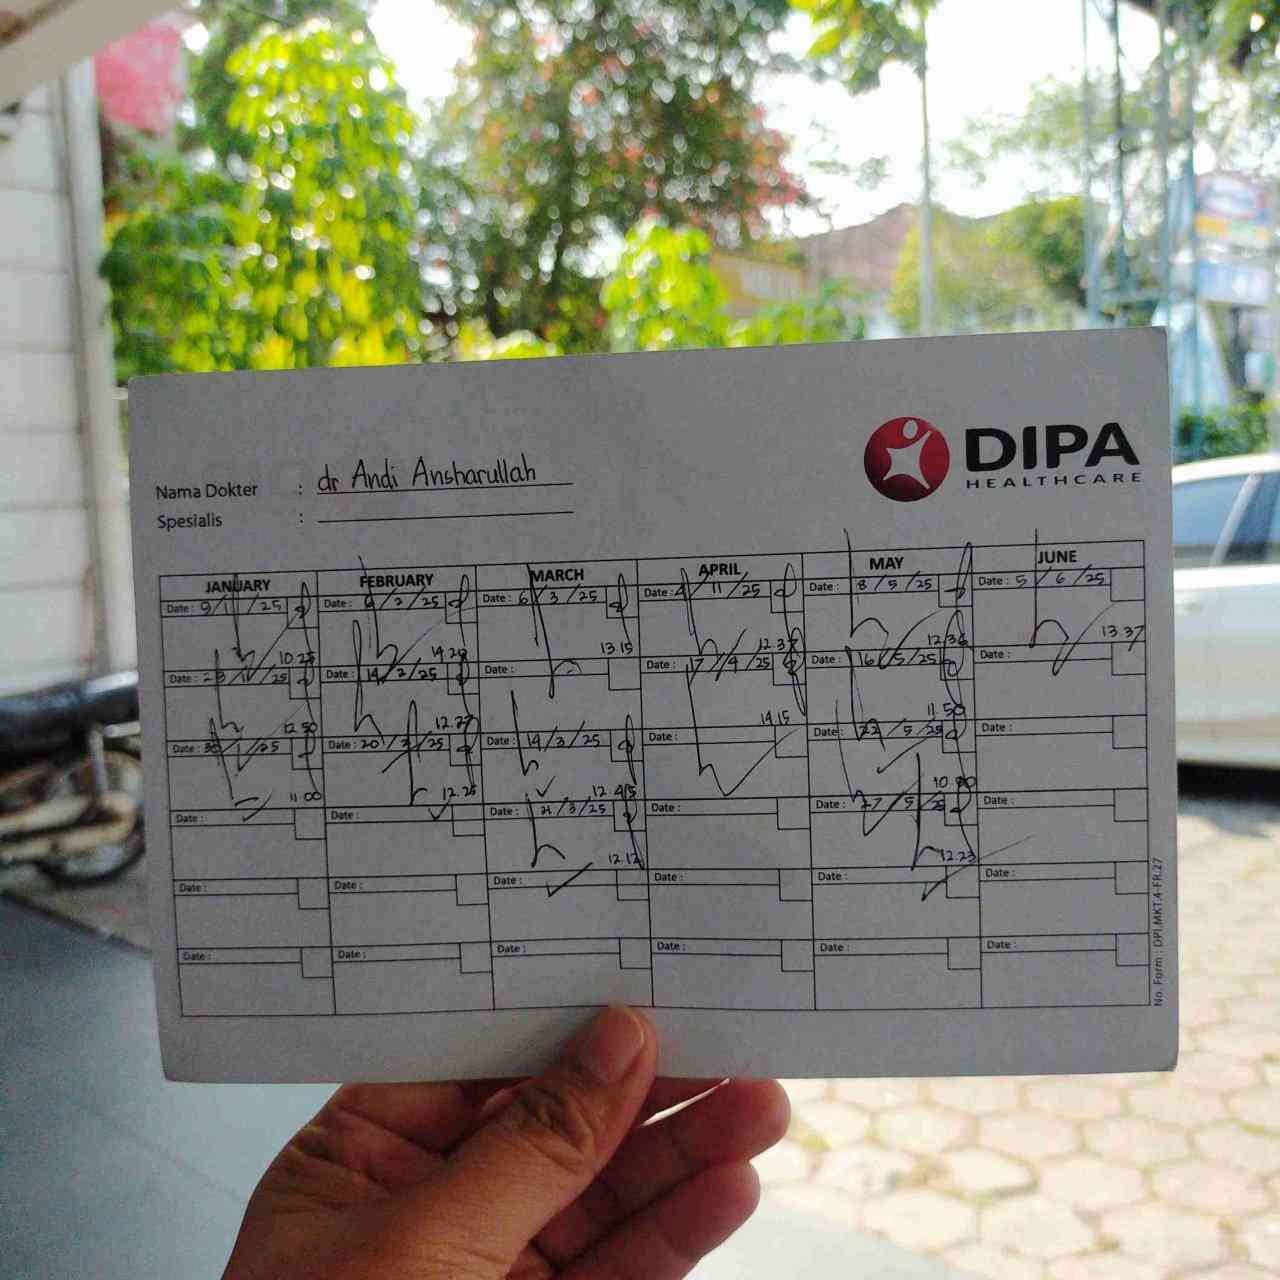 DIPA
HEALTHCARE
Nama Dokter : dr Andi Ansharullah
Spesialis :
JANUARY FEBRUARY MARCH APRIL MAY JUNE
Date : 9/1/25 Date : 6/2/25 Date : 6/3/25 Date : 4/11/25 Date : 8/5/25 Date : 5/6/25
10.25 14.20 13.15 12.37 12.36 13.37
Date : 23/1/25 Date : 14/2/25 Date : Date : 17/4/25 Date : 16/5/25 Date :
12.50 12.27 14.15 11.50
Date : 30/1/25 Date : 20/2/25 Date : 14/3/25 Date : Date : 22/5/25 Date :
11.00 12.25 12.45
Date : Date : Date : 21/3/25 Date : Date : 27/5/25 Date :
12.12 12.23
Date : Date : Date : Date : Date : Date :
Date : Date : Date : Date : Date : Date :
No. Form : DPI.MKT.4-FR.27